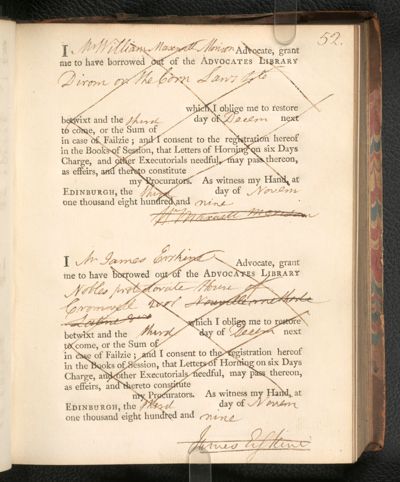 52.
I, Mr William Maxwell Morison Advocate, grant
me to have borrowed out of the ADVOCATES LIBRARY
Dirom on the Corn Laws 4to
which I oblige me to restore
betwixt and the third day of Decem next
to come, or the Sum of
in case of Failzie; and I consent to the registration hereof
in the Books of Session, that Letters of Horning on six Days
Charge, and other Executorials needful, may pass thereon,
as effeirs, and thereto constitute
my Procurators. As witness my Hand, at
EDINBURGH, the third day of Novem
one thousand eight hundred and nine
Wm Maxwell Morison
I Mr James Erskine Advocate, grant
me to have borrowed out of the ADVOCATES LIBRARY
Nobles protectorate House of
Cromwell 2 vol
which I oblige me to restore
betwixt and the third day of Decem next
to come, or the Sum of
in case of Failzie; and I consent to the registration hereof
in the Books of Session, that Letters of Horning on six Days
Charge, and other Executorials needful, may pass thereon,
as effeirs, and thereto constitute
my Procurators. As witness my Hand, at
EDINBURGH, the third day of Novem
one thousand eight hundred and nine
James Erskine